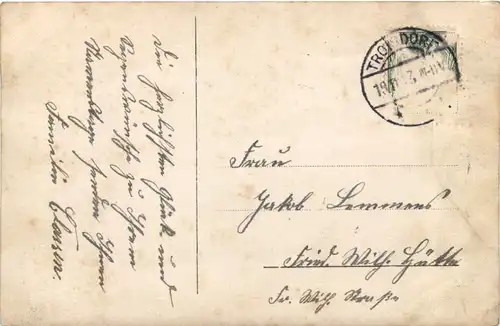 Die herzlichsten Glück und
Segenswünsche zu Ihrem
Namenstage senden Ihnen
Familie Clasen.
TROISDORF
Frau
Jakob Lemmens
Fried. Wilh. Hütte
Fr. Wilh. Straße